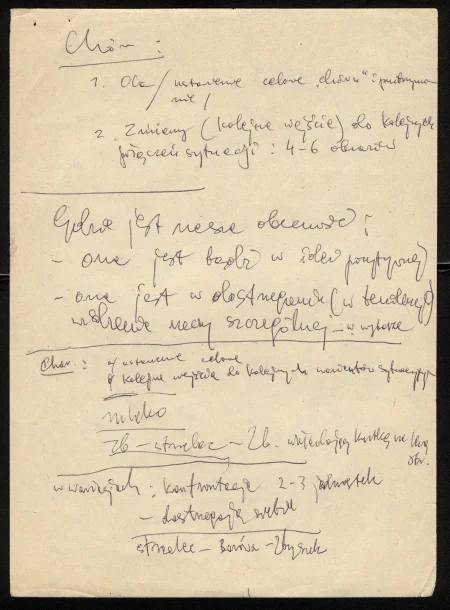 Chór:
1. Ola / ustawienie celowe „chóru" i
nie /
2. Zmiany (kolejne wejście) do kolejnych
połączeń sytuacji : 4-6 obrazów
Gdzie jest nasza obecność?
- ona jest bądź w idei pozytywnej
- ona jest w dostrzeganiu (w tendencji)
rzeczy szczególnej - w wyborze
Chór: a/ ustawienie celowe
b/ kolejne wejścia do kolejnych wariantów sytuacyjnych
mleko
Zb - strzelec - Zb.
w wariacjach : konfrontacje 2-3 jednostek
- dostrzegają siebie
strzelec - - Zbyszek